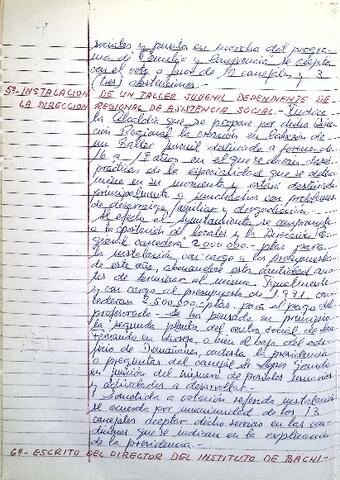 sociales y puesta en marcha del progra-
ma de Empleo y
con el voto a favor de 12 concejales y 3
(tres) abstenciones.-
5º.- INSTALACION DE UN TALLER JUVENIL DEPENDIENTE DE
LA DIRECCION REGIONAL DE ASISTENCIA SOCIAL.-
la Alcaldía que se propone por dicha Direc-
ción Regional la creación en
un Taller juvenil destinado a jóvenes de
16 a años en el que se darán clases
prácticas de la especialidad que se deter-
mine en su momento y estará destinado
principalmente a muchachos con problemas
de desarraigo familiar y drogadicción.-
Al efecto el Ayuntamiento se compromete
a la aportación del local y la Dirección Re-
gional concederá 2.000.000.- ptas para
la instalación, con cargo a los presupuestos
de este año, abonándose esta cantidad an-
tes de terminar el mismo. Igualmente
y con cargo al presupuesto de 1991, con-
cederán 2.500.000 ptas para el pago del
profesorado.- Se ha pensado en principio
la segunda planta del centro social de San
Fernando en o bien el bajo del edi-
ficio de contesta la presidencia
a preguntas del concejal Sr. López Grande
en función del número de posibles usuarios
y actividades a desarrollar.-
Sometida a votación referida instalación
se acuerda por unanimidad de los 13
concejales aceptar dicho servicio en las con-
diciones que se indican en la explicación
de la presidencia.-
6º.- ESCRITO DEL DIRECTOR DEL INSTITUTO DE BACHI-